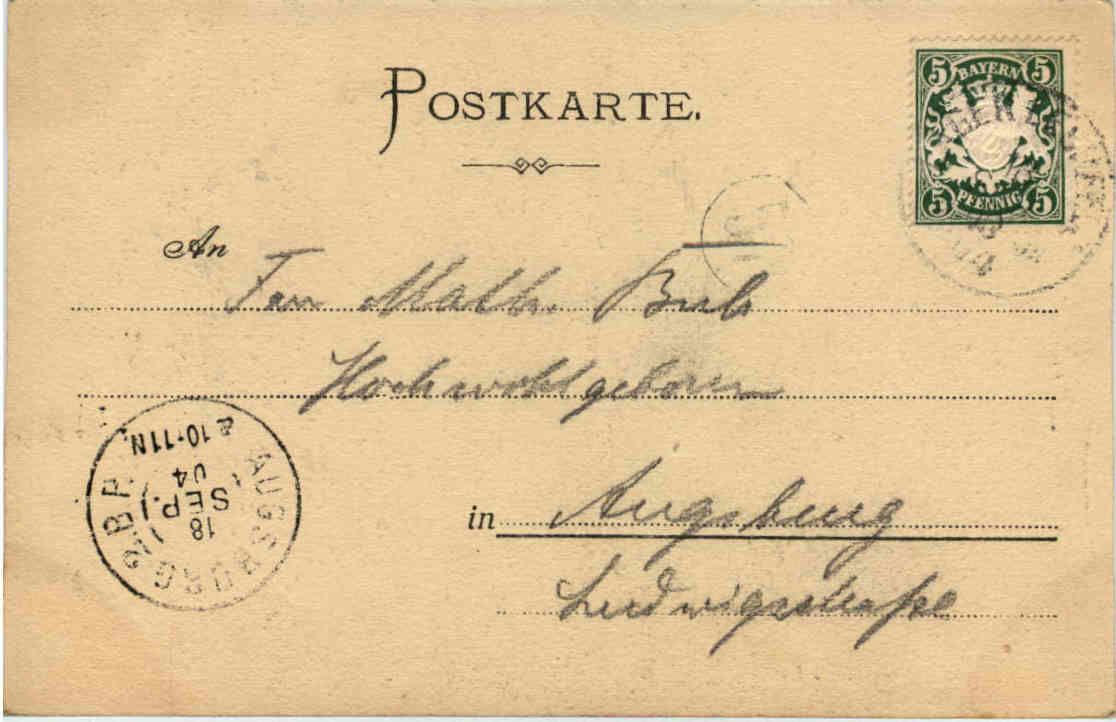 POSTKARTE.
5 BAYERN 5
5 PFENNIG 5
An
Frau Math.
Hochwohlgeboren
in Augsburg
Ludwigstraße
AUGSBURG 2.B.P.
18
SEP.
04
10-11N